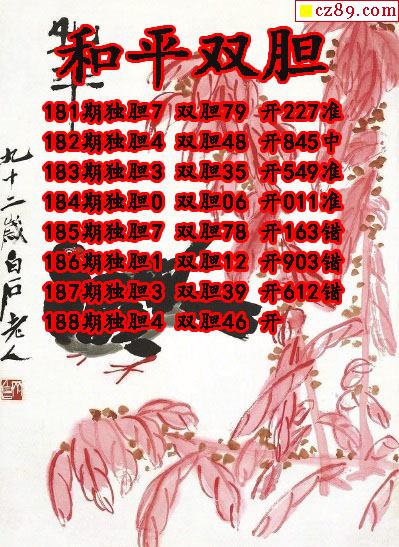 cz89.com
和平双胆
181期独胆7 双胆79 开227准
182期独胆4 双胆48 开845中
183期独胆3 双胆35 开549准
184期独胆0 双胆06 开011准
185期独胆7 双胆78 开163错
186期独胆1 双胆12 开903错
187期独胆3 双胆39 开612错
188期独胆4 双胆46 开
九十二岁白石老人